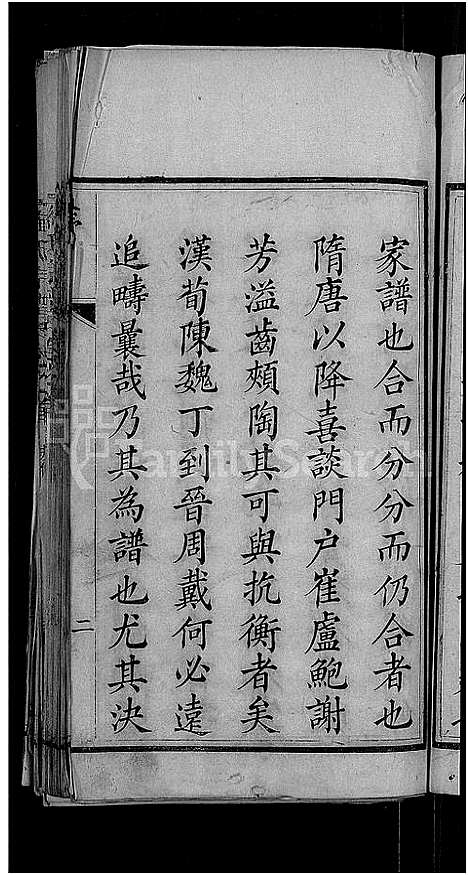 家譜也合而分分而仍合者也
隋唐以降喜談門户崔盧鮑謝
芳溢齒頰陶其可與抗衡者矣
漢荀陳魏丁到晉周戴何必遠
追疇曩哉乃其為譜也尤其決
二
FamilySearch